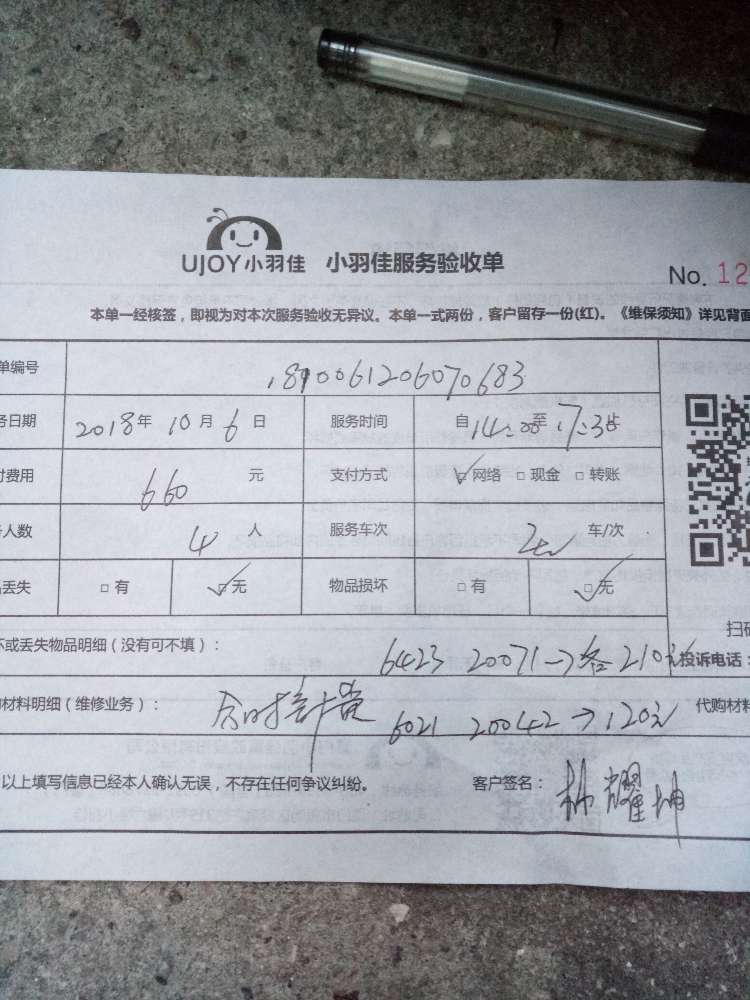 UJOY小羽佳 小羽佳服务验收单
No. 12
本单一经核签，即视为对本次服务验收无异议。本单一式两份，客户留存一份(红)。《维保须知》详见背面
单编号 1810061206070683
务日期 2018年 10月 6日 服务时间 自14:00至17:30止
付费用 660 元 支付方式 网络 现金 转账
人数 4 人 服务车次 2 车/次
丢失 有 无 物品损坏 有 无
扫码
坏或丢失物品明细（没有可不填）：
6423 20071→各210元
投诉电话：
材料明细（维修业务）：
6021 20042→120元
代购材料
以上填写信息已经本人确认无误，不存在任何争议纠纷。 客户签名： 林耀坤